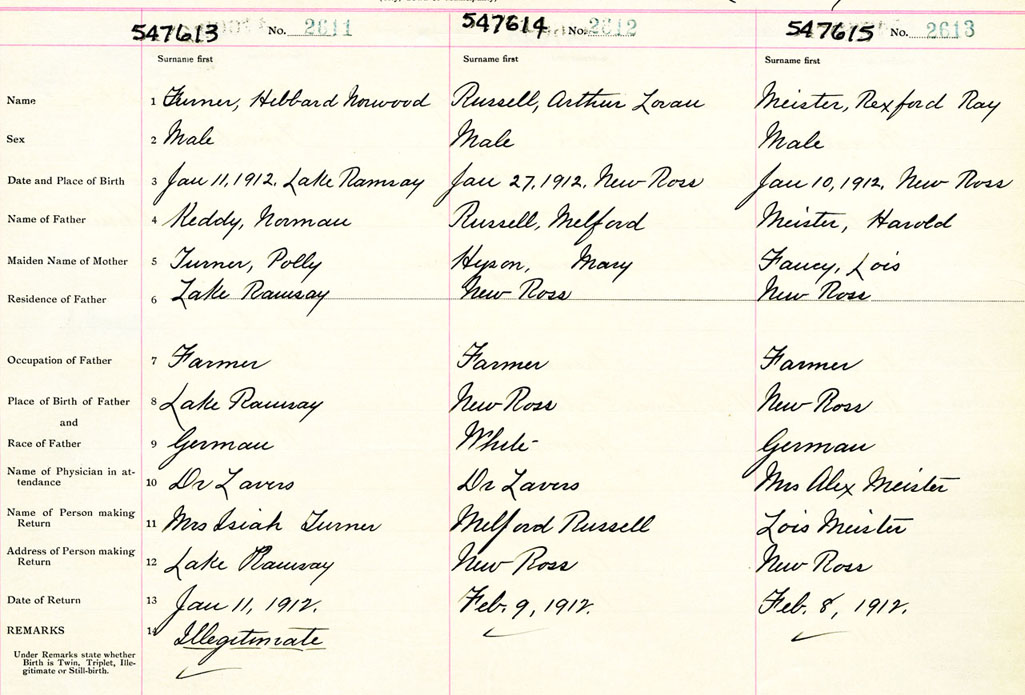 547613 No. 2611 547614 No. 2612 547615 No. 2613
Surname first Surname first Surname first
Name 1 Turner, Hibbard Norwood Russell, Arthur Loran Meister, Rexford Ray
Sex 2 Male Male Male
Date and Place of Birth 3 Jan 11, 1912. Lake Ramsay Jan 27, 1912. New Ross Jan 10, 1912. New Ross
Name of Father 4 Reddy, Norman Russell, Melford Meister, Harold
Maiden Name of Mother 5 Turner, Polly Hyson, Mary Fancy, Lois
Residence of Father 6 Lake Ramsay New Ross New Ross
Occupation of Father 7 Farmer Farmer Farmer
Place of Birth of Father 8 Lake Ramsay New Ross New Ross
and
Race of Father 9 German White German
Name of Physician in at-
tendance 10 Dr Lavers Dr Lavers Mrs Alex Meister
Name of Person making
Return 11 Mrs Isiah Turner Melford Russell Lois Meister
Address of Person making
Return 12 Lake Ramsay New Ross New Ross
Date of Return 13 Jan 11, 1912. Feb. 9, 1912. Feb. 8, 1912.
REMARKS 14 Illegitimate
Under Remarks state whether
Birth is Twin, Triplet, Ille-
gitimate or Still-birth.